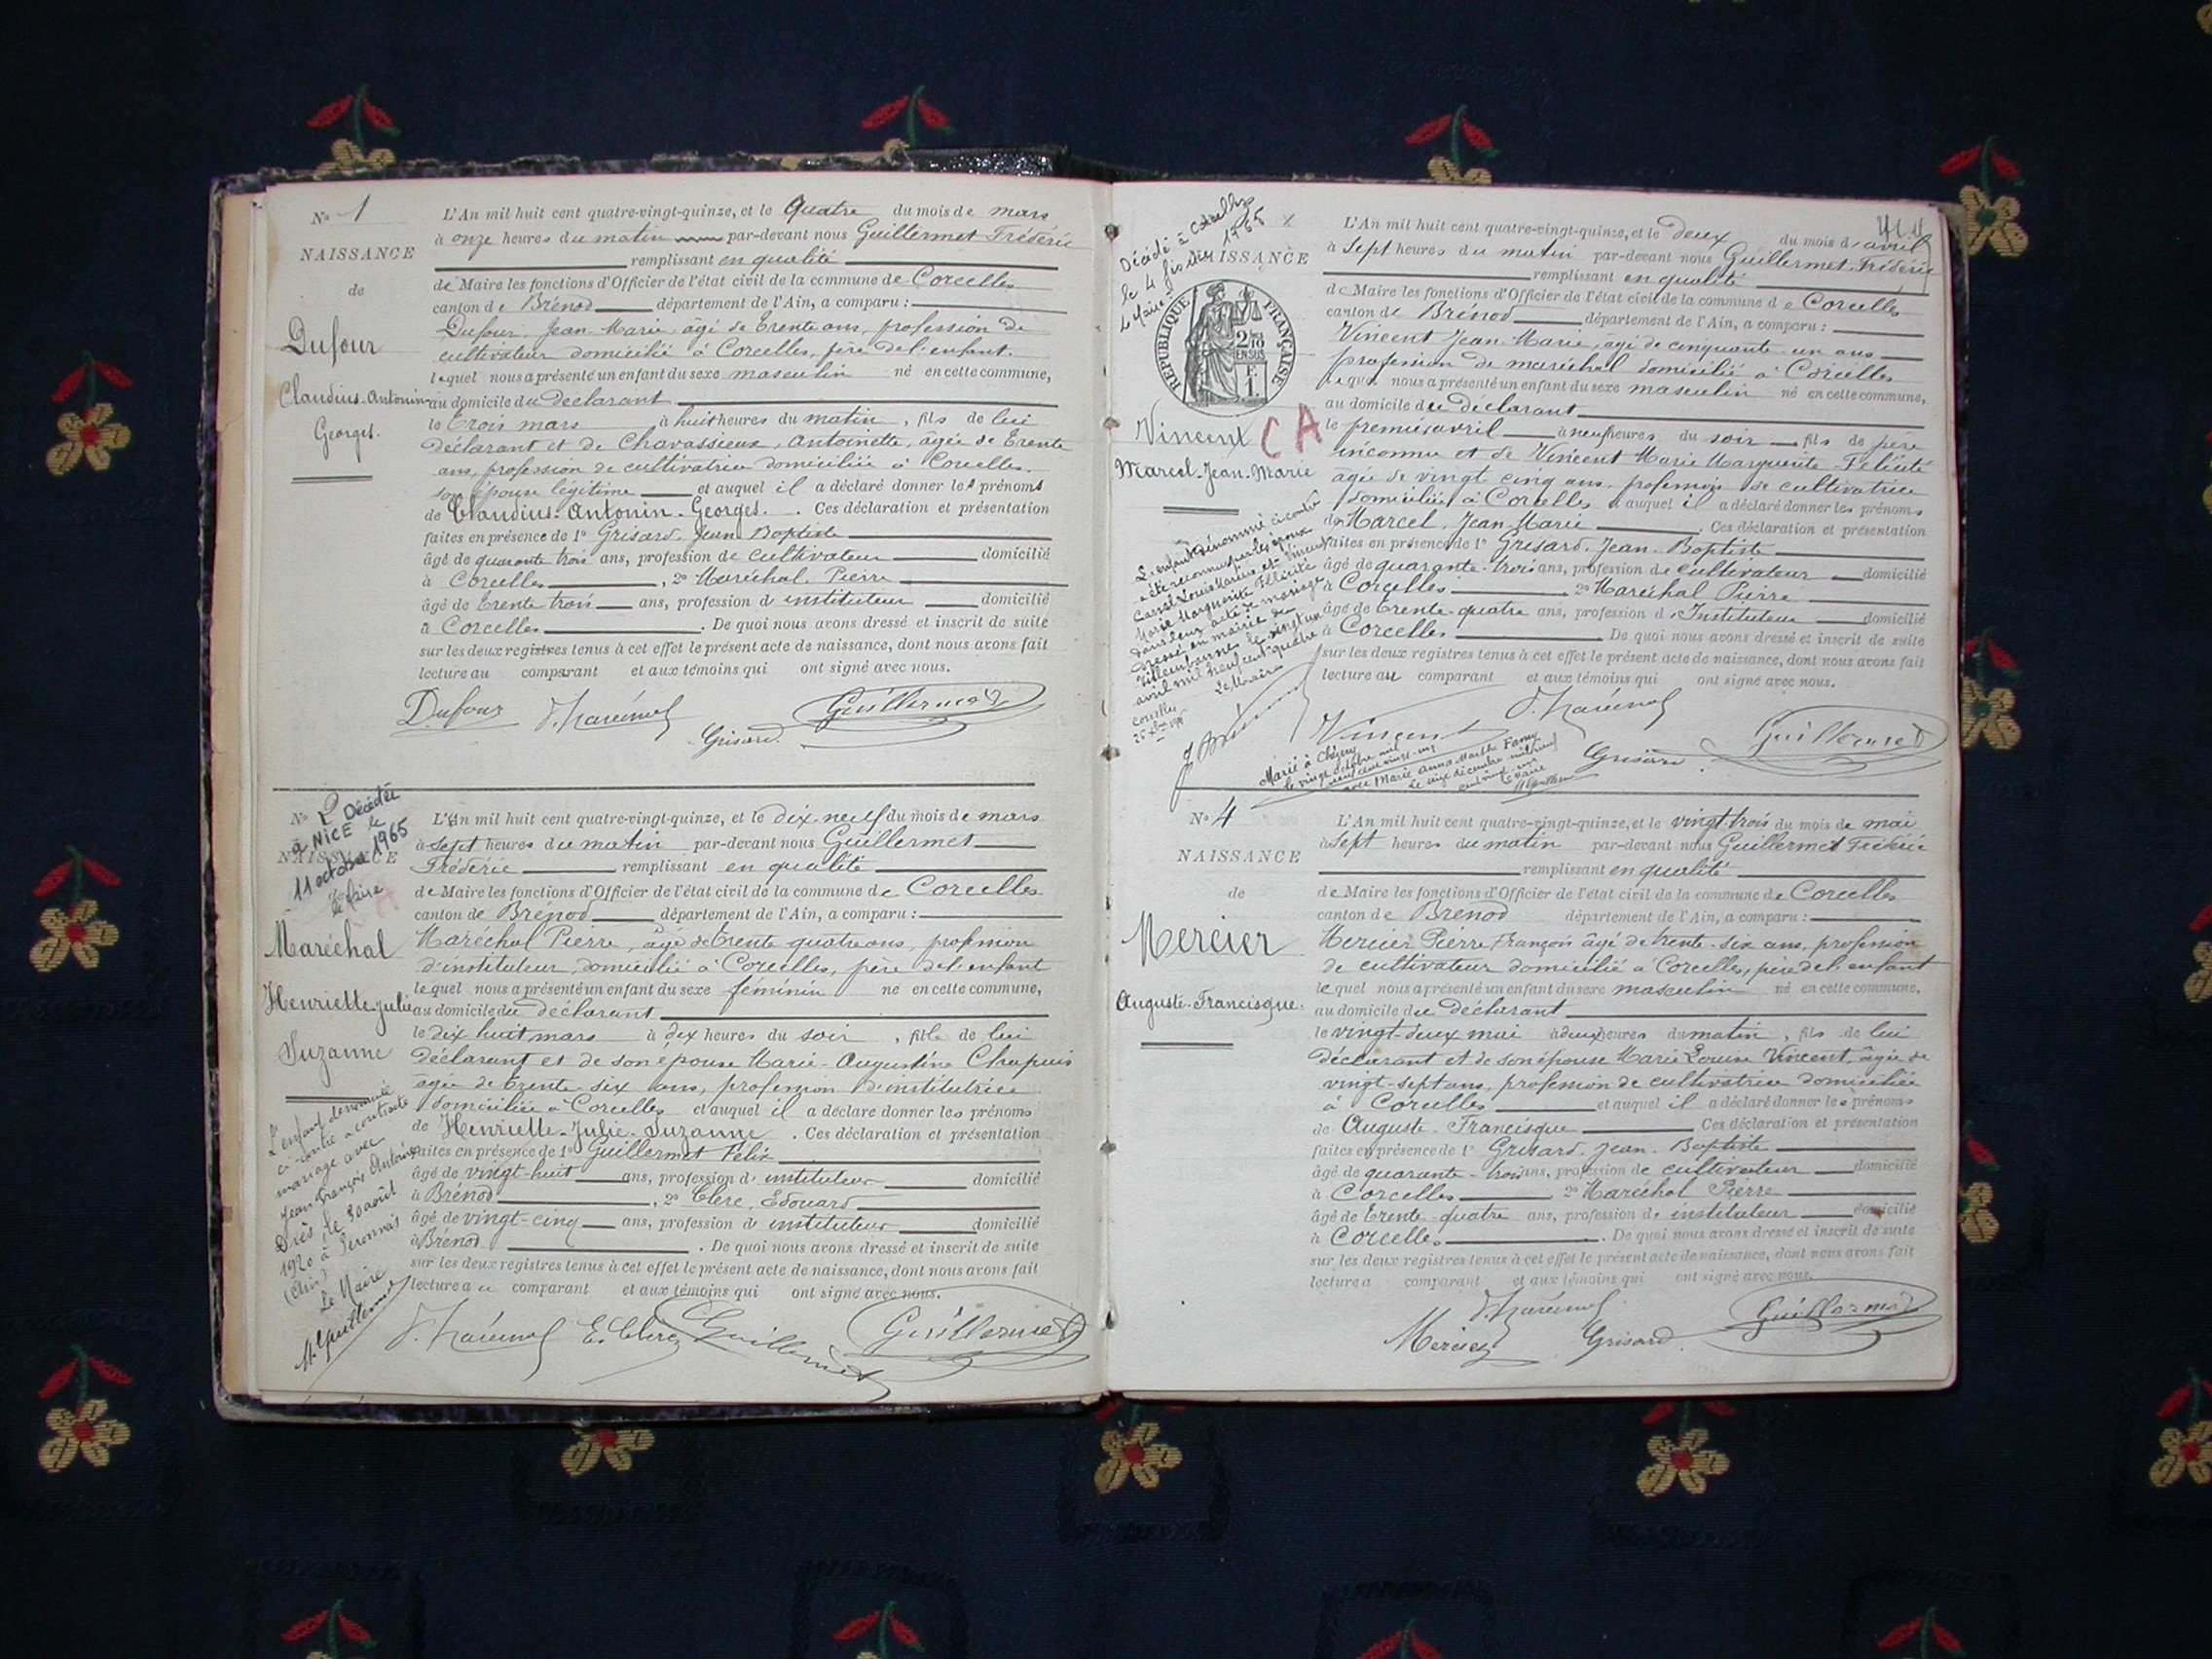 N° 1
NAISSANCE
de
Dufour
Claudius-Antonin
Georges.
L'An mil huit cent quatre-vingt-quinze, et le Quatre du mois de mars
à onze heures du matin par-devant nous Guillermet Frédéric
remplissant en qualité
de Maire les fonctions d'Officier de l'état civil de la commune de Corcelles
canton de Brénod département de l'Ain, a comparu :
Dufour Jean-Marie âgé de trente ans, profession de
cultivateur domicilié à Corcelles, père de l'enfant.
lequel nous a présenté un enfant du sexe masculin né en cette commune,
au domicile du déclarant
le trois mars à huit heures du matin, fils de lui
déclarant et de Chavassieux, Antoinette, âgée de trente
ans, profession de cultivatrice domiciliée à Corcelles.
son épouse légitime et auquel il a déclaré donner les prénoms
de Claudius-Antonin-Georges. Ces déclaration et présentation
faites en présence de 1° Grisard, Jean Baptiste
âgé de quarante trois ans, profession de cultivateur domicilié
à Corcelles, 2° Maréchal Pierre
âgé de trente trois ans, profession d instituteur domicilié
à Corcelles. De quoi nous avons dressé et inscrit de suite
sur les deux registres tenus à cet effet le présent acte de naissance, dont nous avons fait
lecture au comparant et aux témoins qui ont signé avec nous.
Dufour P. Maréchal Grisard. Guillermet
N° 2
Décédée
à NICE le
11 octobre 1965
le Maire
NAISSANCE
Maréchal
Henriette-Julie
Suzanne
L'enfant dénommée
ci-contre a contracté
mariage avec
Jean François Antoine
le 30 août
1920 à Péronnas
(Ain)
Le Maire
M. Guillermet
L'An mil huit cent quatre-vingt-quinze, et le dix-neuf du mois de mars
à sept heures du matin par-devant nous Guillermet
Frédéric remplissant en qualité
de Maire les fonctions d'Officier de l'état civil de la commune de Corcelles
canton de Brénod département de l'Ain, a comparu :
Maréchal Pierre, âgé de trente quatre ans, profession
d'instituteur, domicilié à Corcelles, père de l'enfant
lequel nous a présenté un enfant du sexe féminin né en cette commune,
au domicile du déclarant
le dix huit mars à dix heures du soir, fille de lui
déclarant et de son épouse Marie-Augustine Chapuis
âgée de trente-six ans, profession d'institutrice
domiciliée à Corcelles et auquel il a déclaré donner les prénoms
de Henriette-Julie-Suzanne. Ces déclaration et présentation
faites en présence de 1° Guillermet Félix
âgé de vingt-huit ans, profession d' instituteur domicilié
à Brénod, 2° Clerc, Edouard
âgé de vingt-cinq ans, profession d instituteur domicilié
à Brénod. De quoi nous avons dressé et inscrit de suite
sur les deux registres tenus à cet effet le présent acte de naissance, dont nous avons fait
lecture au comparant et aux témoins qui ont signé avec nous.
P. Maréchal E. Clerc Guillermet Guillermet
Décédé à Corcelles
le 4 1965
le Maire
NAISSANCE
RÉPUBLIQUE FRANÇAISE
2/10
EN SUS
Vincent
CA
Marcel-Jean-Marie
L'enfant dénommé ci-contre
a été reconnu par les époux
Louis Marius et Vincent
Marie Marguerite Félicité
dans leur acte de mariage
dressé en mairie de
Villeurbanne le vingt un
avril mil neuf cent quatre
Le Maire
Corcelles
L'An mil huit cent quatre-vingt-quinze, et le deux du mois d'avril
à sept heures du matin par-devant nous Guillermet Frédéric
remplissant en qualité
de Maire les fonctions d'Officier de l'état civil de la commune de Corcelles
canton de Brénod département de l'Ain, a comparu :
Vincent Jean-Marie, âgé de cinquante-un ans
profession de maréchal domicilié à Corcelles
lequel nous a présenté un enfant du sexe masculin né en cette commune,
au domicile du déclarant
le premier avril à neuf heures du soir fils de père
inconnu et de Vincent Marie Marguerite Félicité
âgée de vingt cinq ans, profession de cultivatrice
domiciliée à Corcelles et auquel il a déclaré donner les prénoms
de Marcel, Jean-Marie. Ces déclaration et présentation
faites en présence de 1° Grisard, Jean-Baptiste
âgé de quarante-trois ans, profession de cultivateur domicilié
à Corcelles 2° Maréchal Pierre
âgé de trente-quatre ans, profession d'Instituteur domicilié
à Corcelles. De quoi nous avons dressé et inscrit de suite
sur les deux registres tenus à cet effet le présent acte de naissance, dont nous avons fait
lecture au comparant et aux témoins qui ont signé avec nous.
Vincent P. Maréchal Grisard. Guillermet
Marié à Chézery
le vingt octobre mil
neuf cent vingt-un
avec Marie Anna Marthe Fanny
le onze décembre mil neuf
cent vingt-un
Le Maire
N° 4
NAISSANCE
de
Mercier
Auguste-Francisque.
L'An mil huit cent quatre-vingt-quinze, et le vingt-trois du mois de mai
à sept heures du matin par-devant nous Guillermet Frédéric
remplissant en qualité
de Maire les fonctions d'Officier de l'état civil de la commune de Corcelles
canton de Brénod département de l'Ain, a comparu :
Mercier Pierre François âgé de trente-six ans, profession
de cultivateur domicilié à Corcelles, père de l'enfant
lequel nous a présenté un enfant du sexe masculin né en cette commune,
au domicile du déclarant
le vingt-deux mai à deux heures du matin, fils de lui
déclarant et de son épouse Marie Louise Vincent, âgée de
vingt-sept ans, profession de cultivatrice domiciliée
à Corcelles et auquel il a déclaré donner les prénoms
de Auguste-Francisque Ces déclaration et présentation
faites en présence de 1° Grisard, Jean-Baptiste
âgé de quarante-trois ans, profession de cultivateur domicilié
à Corcelles 2° Maréchal Pierre
âgé de trente-quatre ans, profession d' instituteur domicilié
à Corcelles. De quoi nous avons dressé et inscrit de suite
sur les deux registres tenus à cet effet le présent acte de naissance, dont nous avons fait
lecture a comparant et aux témoins qui ont signé avec nous.
Mercier P. Maréchal Grisard. Guillermet